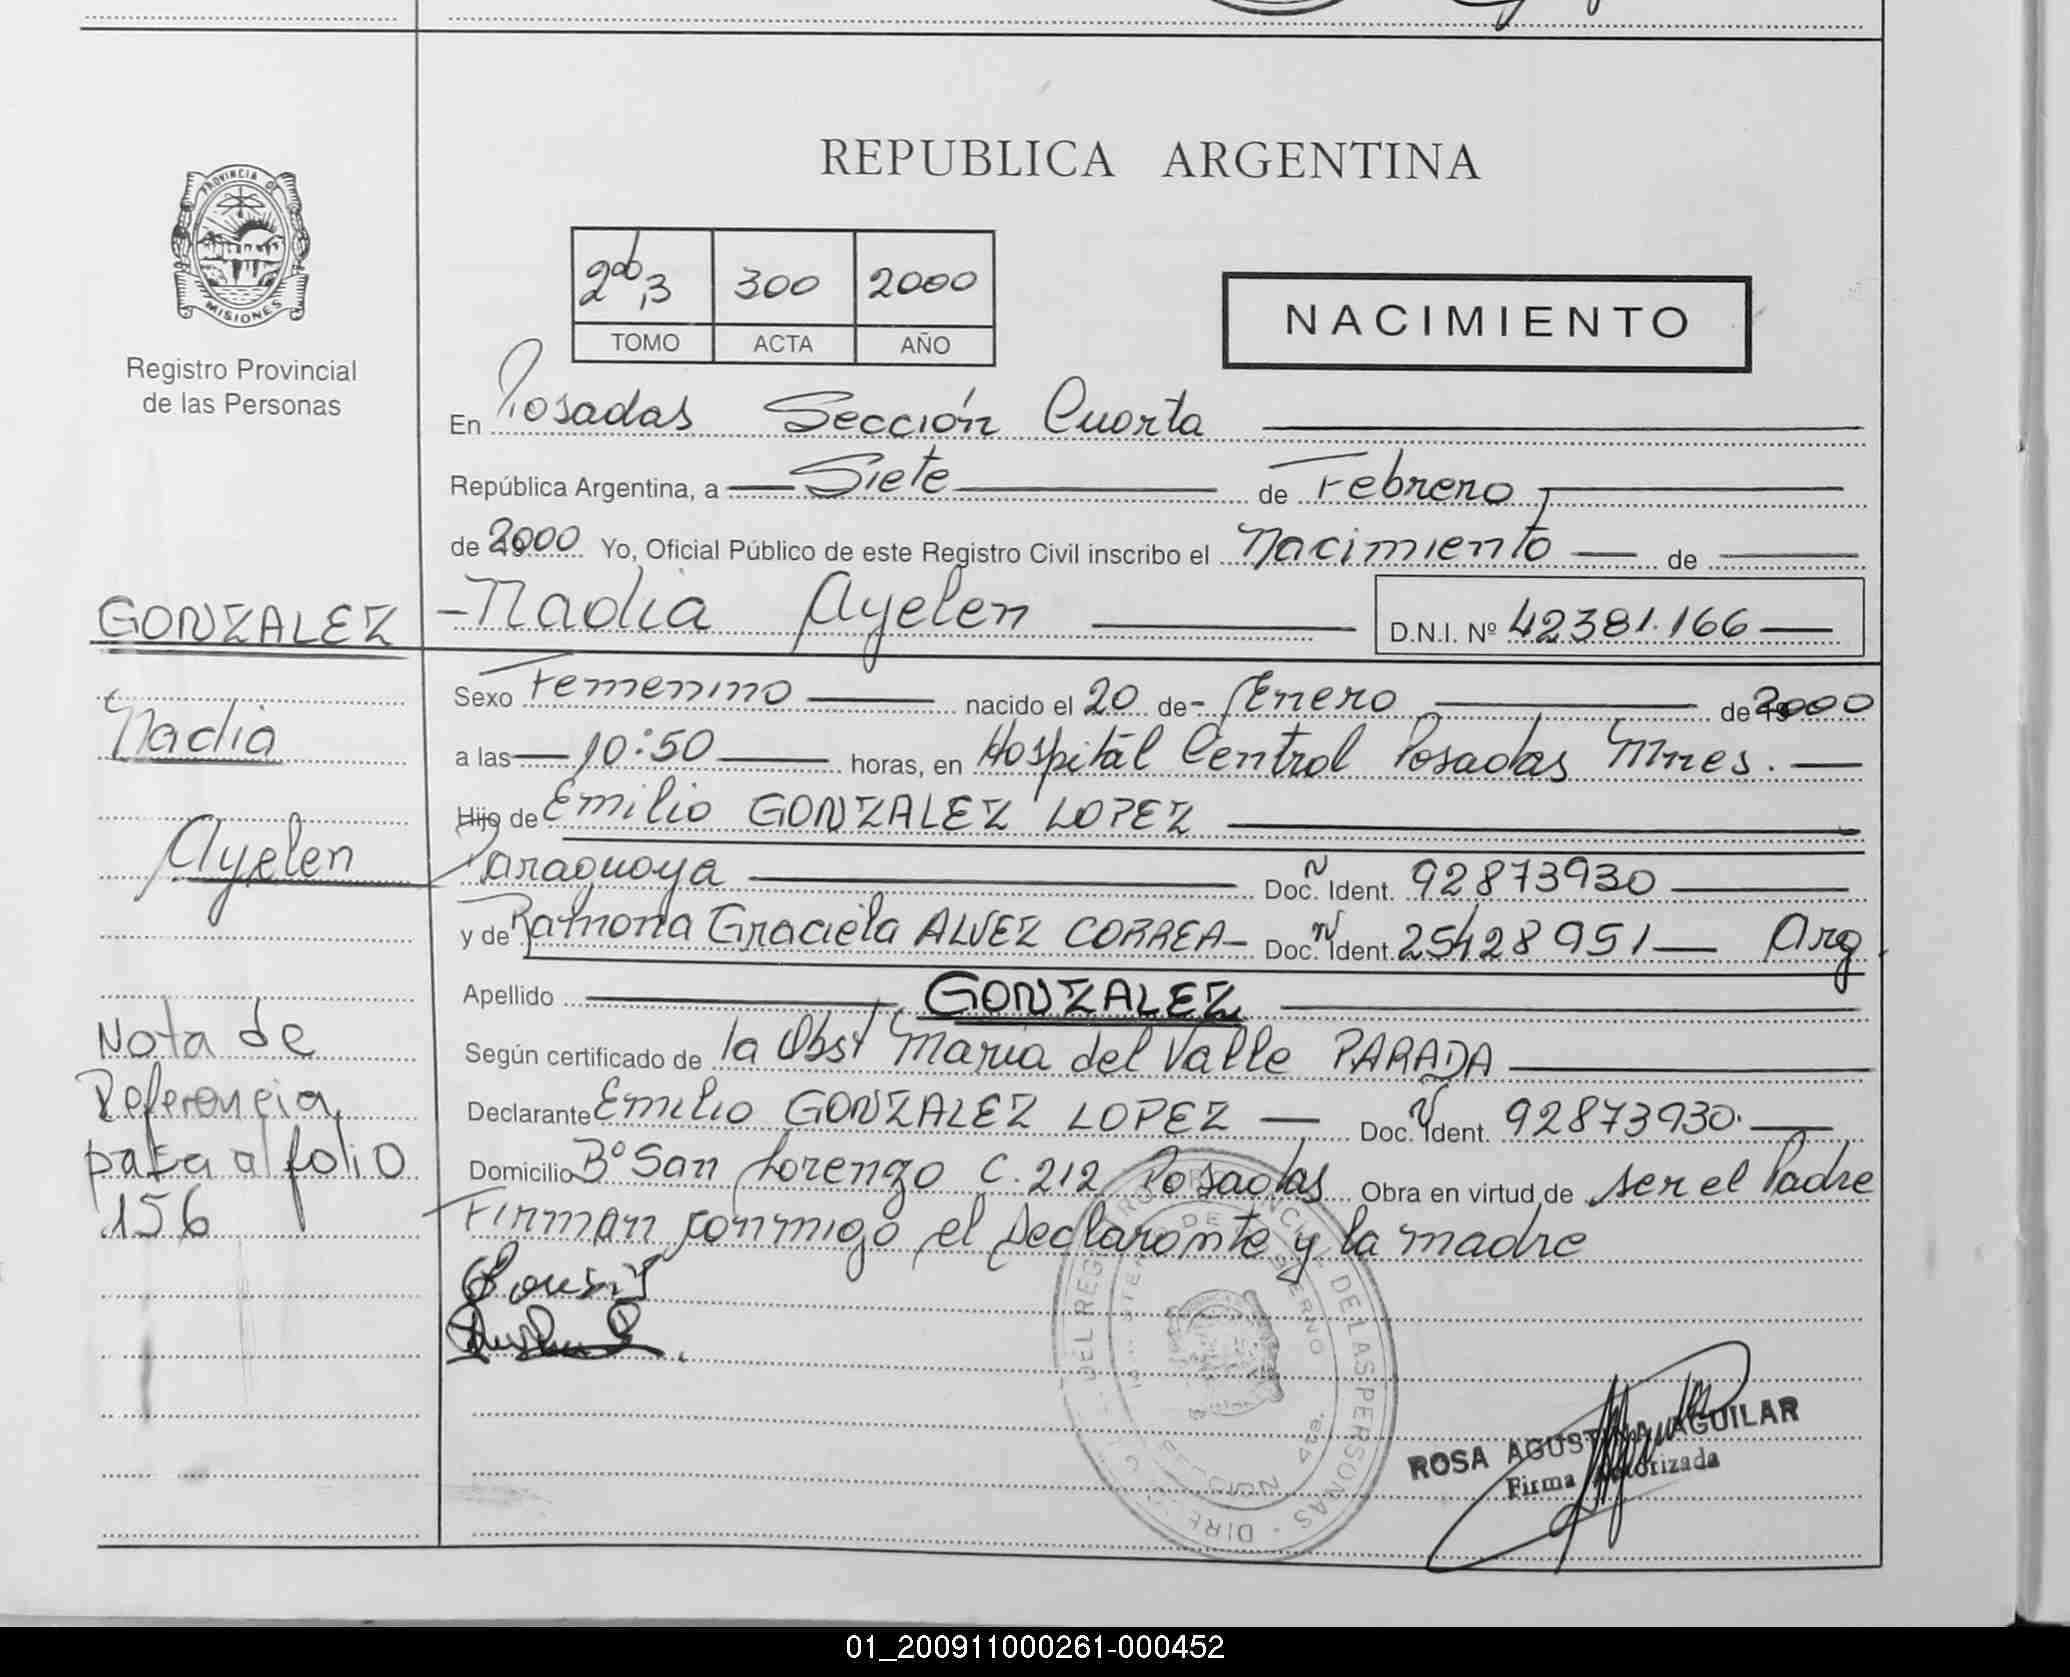 REPUBLICA ARGENTINA
PROVINCIA DE
MISIONES
Registro Provincial
de las Personas
300 2000
TOMO ACTA AÑO
NACIMIENTO
En Posadas Sección Cuarta
República Argentina, a Siete de Febrero
de 2000 Yo, Oficial Público de este Registro Civil inscribo el Nacimiento de
GONZALEZ
Nadia Ayelen D.N.I. Nº 42381.166
Sexo Femenino nacido el 20 de Enero de 2000
Nadia
a las 10:50 horas, en Hospital Central Posadas Mnes.
Hijo de Emilio GONZALEZ LOPEZ
Ayelen
Paraguaya Doc. Ident. 92873930
y de Ramona Graciela ALVEZ CORREA Doc. Ident. 25428951 Arg.
Apellido GONZALEZ
Nota de
Referencia
pasa al folio
156
Según certificado de la Obst Maria del Valle PARADA
Declarante Emilio GONZALEZ LOPEZ Doc. Ident. 92873930.
Domicilio Bº San Lorenzo C. 212 Posadas Obra en virtud de ser el Padre
Firman conmigo el Declarante y la madre
ROSA AGUSTINA AGUILAR
Firma Autorizada
01_200911000261-000452